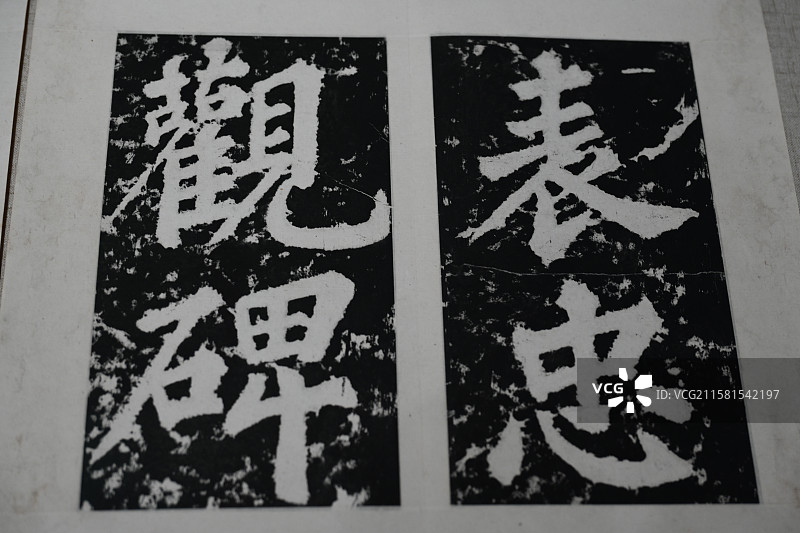 表忠
觀碑
VCG
ID:VCG211581542197